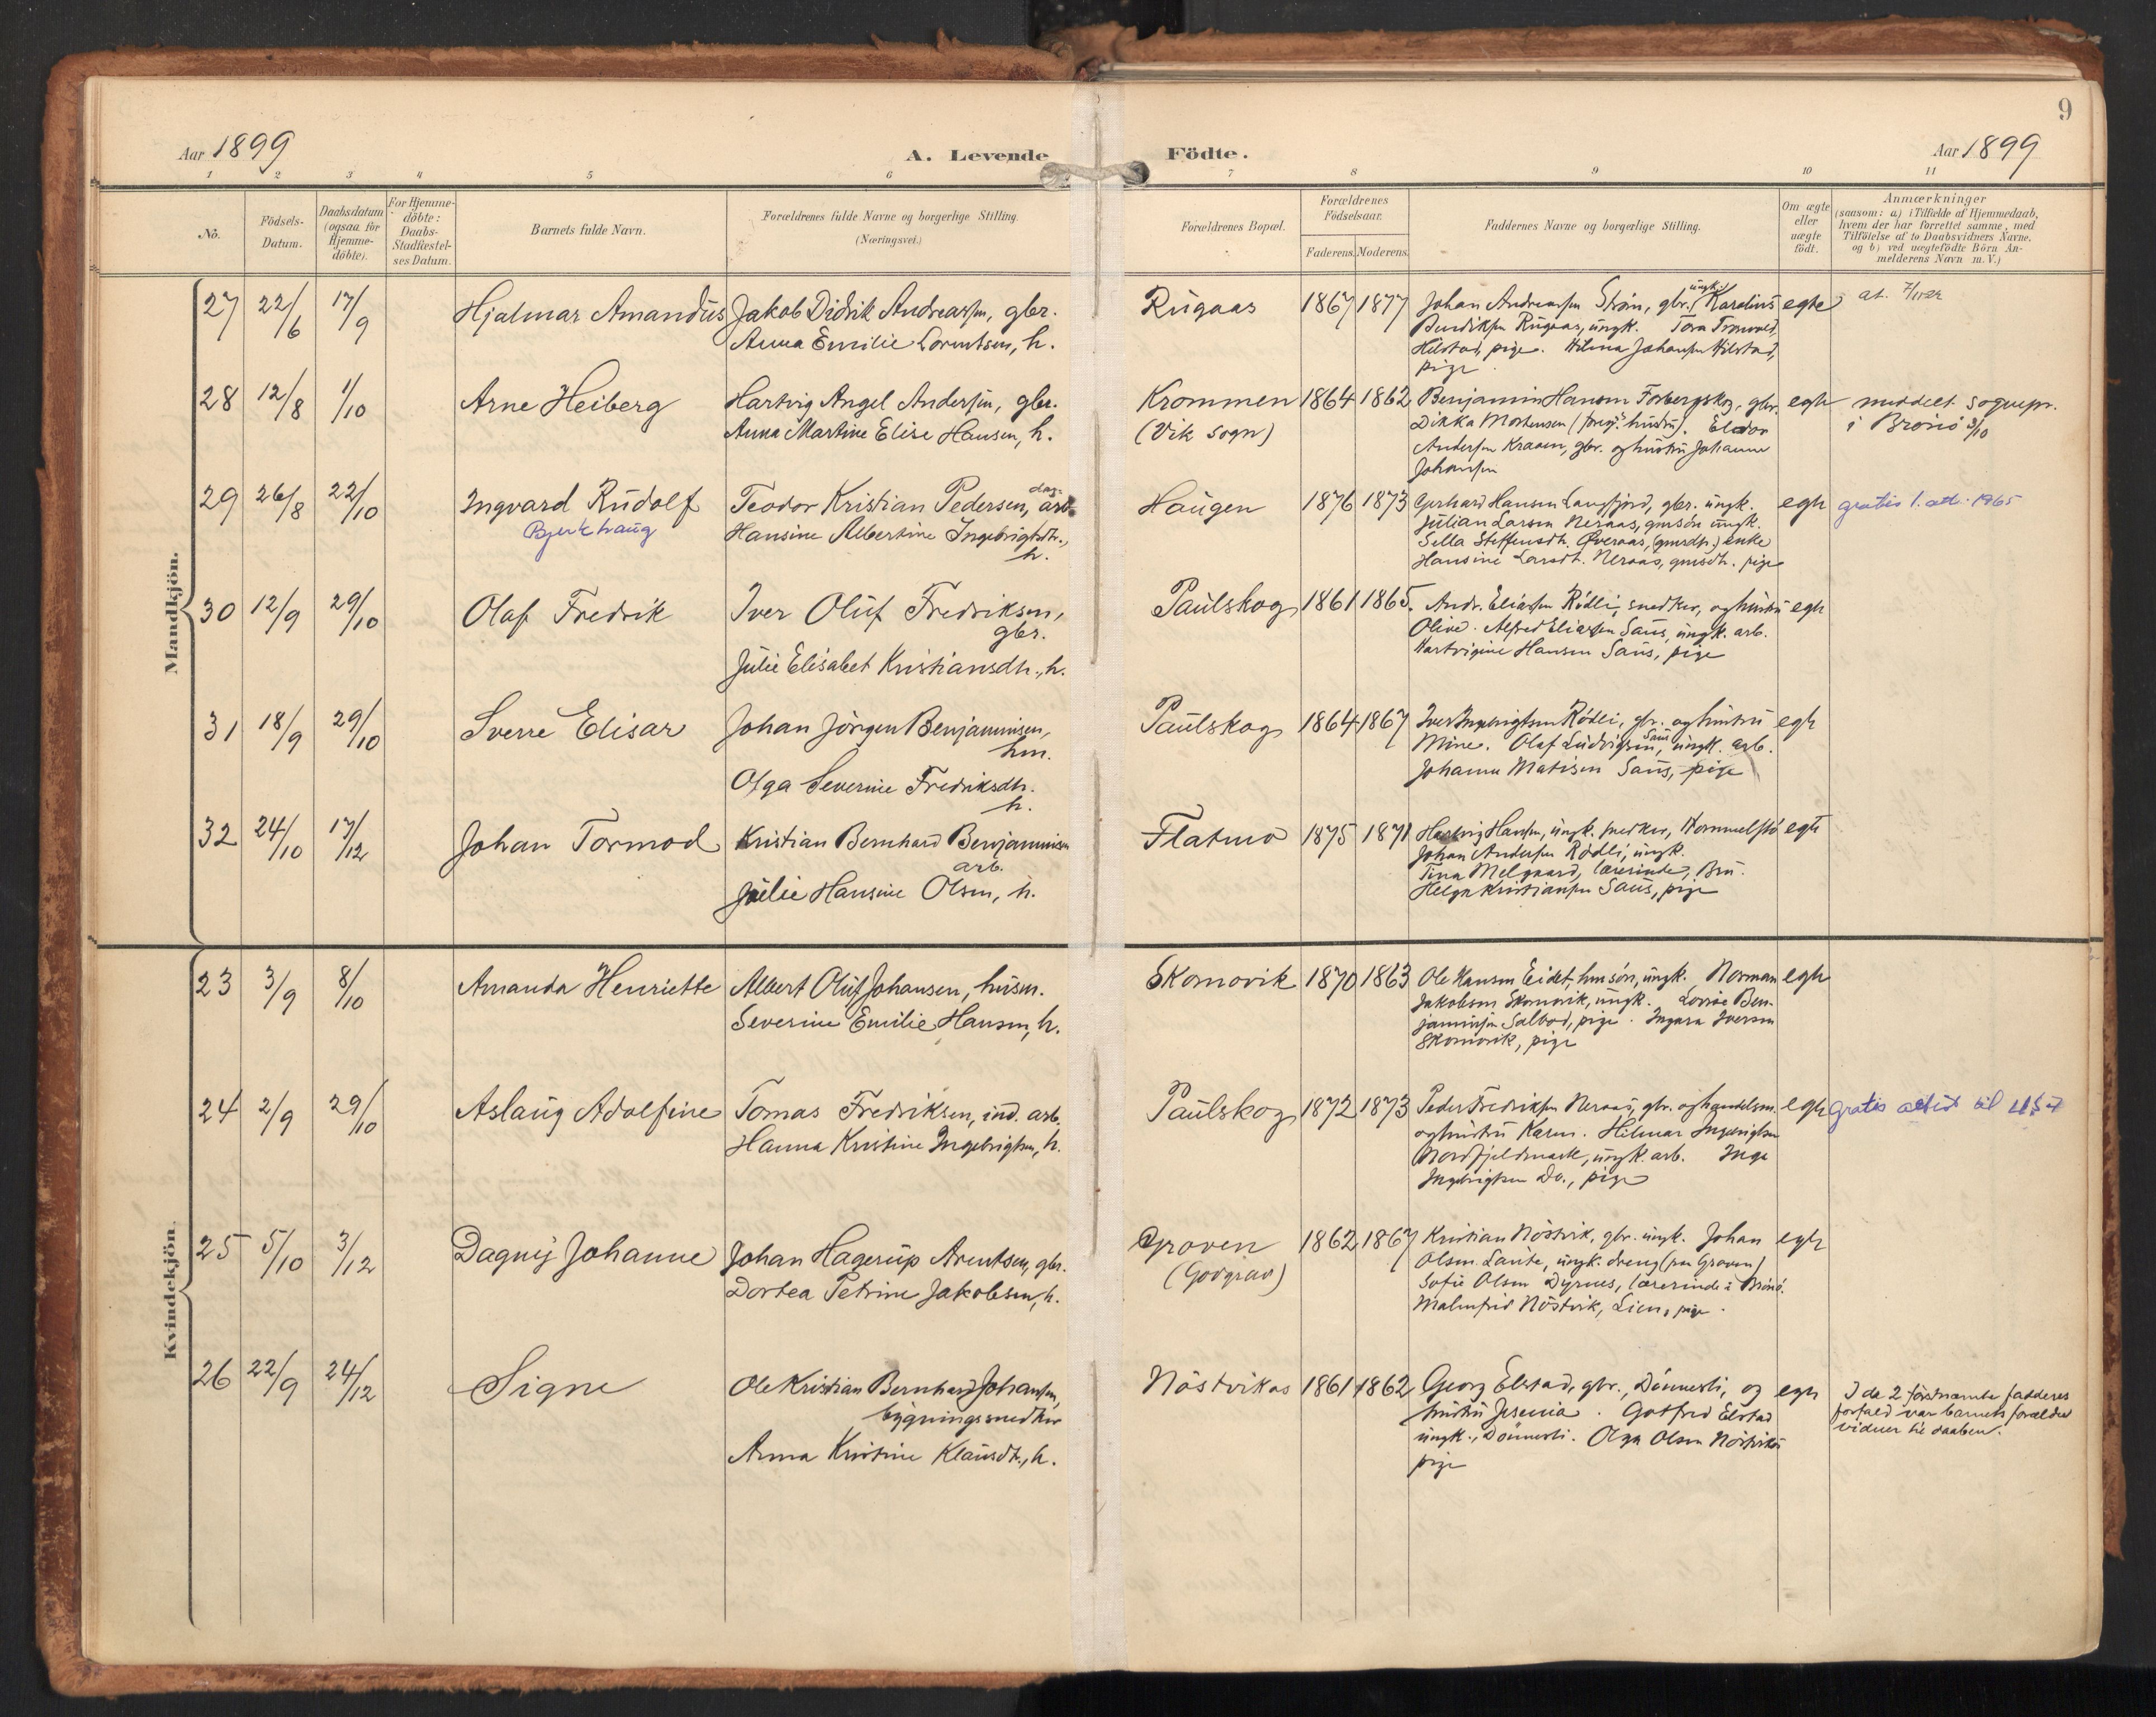 9
Aar 1899
A. Levende
Födte.
Aar 1899
1 2 3 4 5 6 7 8 9 10 11
No.
Födsels-
Datum.
Daabsdatum
(ogsaa for
Hjemme-
döbte).
For Hjemme-
döbte:
Daabs-
Stadfæstel-
ses Datum.
Barnets fulde Navn.
Forældrenes fulde Navne og borgerlige Stilling.
(Næringsvei.)
Forældrenes Bopæl.
Forældrenes
Födselsaar.
Faderens. Moderens.
Faddernes Navne og borgerlige Stilling.
Om ægte
eller
uægte
födt.
Anmærkninger
(saasom: a) i Tilfælde af Hjemmedaab,
hvem der har forrettet samme, med
Tilföielse af to Daabsvidners Navne.
og b) ved uægtefödte Börn An-
melderens Navn m. V.)
Mandkjön.
27 22/6 17/9 Hjalmar Amandus
Jakob Didrik Andreassen, gbr.
Anna Emilie Lorentsen, h.
Rugaas 1867 1877
Johan Andreassen Strøm, gbr. Karolius
ungk.
Bendiksen Rugaas, ungk. Tora
Hilstad, pige. Hilma Johansen Hilstad,
pige
egte
at.
28 12/8 1/10 Arne Heiberg
Hartvig Angel Andersen, gbr.
Anna Martine Elise Hansen, h.
Krommen
(Vik sogn)
1864 1862
Benjamin Hansen Forbergskog, gbr.
Dikka Mortensen (forrig. hustru). Eldor
Andersen Kraaen, gbr. og hustru Johanne
Johansen
egte
meddelt sognepr.
i Brönö 3/10
29 26/8 22/10 Ingvard Rudolf
Bjerkhaug
Teodor Kristian Pedersen, dag-
arb.
Hansine Albertine Ingebrigtsdtr.,
h.
Haugen 1876 1873
Gerhard Hansen Langfjord, gbr. ungk.
Julian Larsen Neraas, gmsön ungk.
Sella Steffensdtr. Øveraas, (gmsdtr.) enke
Hansine Larsdtr. Neraas, gmsdtr. pige
egte
gratis l. att. 1965
30 12/9 29/10 Olaf Fredrik
Iver Oluf Fredriksen,
gbr.
Julie Elisabet Kristiansdtr., h.
Paulskog 1861 1865.
Andr. Eliassen Rödli, snedker, og hustru
Olive. Alfred Eliassen Saus, ungk. arb.
Hartvigine Hansen Saus, pige
egte
31 18/9 29/10 Sverre Elisar
Johan Jörgen Benjaminsen,
hm.
Olga Severine Fredriksdtr.
h.
Paulskog 1864 1867
Iver Ingebrigtsen Rödli, gbr. og hustru
Mine. Olaf Ludvigsen Saus, ungk. arb.
Johanna Matisen Saus, pige
egte
32 24/10 17/12 Johan Tormod
Kristian Bernhard Benjaminsen
arb.
Julie Hansine Olsen, h.
Flatmo 1875 1871
Hartvig Hansen, ungk. snedker, Hommelstö
Johan Andersen Rödli, ungk.
Tina Melgaard, lærerinde, Brö.
Helga Kristiansen Saus, pige
egte
Kvindekjön.
23 3/9 8/10 Amanda Henriette
Albert Oluf Johansen, husm.
Severine Emilie Hansen, h.
Skomovik 1870 1863
Ole Hansen Eidet, hmsön, ungk. Norman
Jakobsen Skomovik, ungk. Lovise Ben-
jaminsen Salbod, pige. Ingara Iversen
Skomovik, pige
egte
24 2/9 29/10 Aslaug Adolfine
Tomas Fredriksen, ind. arb.
Hanna Kristine Ingebrigtsen, h.
Paulskog 1872 1873
Peder Fredriksen Neraas, gbr. og handelsm.
og hustru Karen. Hilmar Ingebrigtsen
Nordfjeldmark, ungk. arb. Inga
Ingebrigtsen Do., pige
egte
gratis attest til
25 5/10 3/12 Dagny Johanne
Johan Hagerup Arentsen, gbr.
Dortea Petrine Jakobsen, h.
Groven
(Godgrav)
1862 1867
Kristian Nöstvik, gbr. ungk. Johan
Olsen Lante, ungk. dreng (paa Groven)
Sofie Olsen Dyrnes, lærerinde i Brönö.
Malmfrid Nöstvik, Lien, pige.
egte
26 22/9 24/12 Signe
Ole Kristian Bernhard Johansen,
bygningssnedker
Anna Kristine Klausdtr., h.
Nöstvikas 1861 1862
Georg Elstad, gbr., Dönnesli, og
hustru Jesenia. Gotfred Elstad
ungk., Dönnesli. Olga Olsen Nöstvikas
pige
egte
I de 2 förstnævnte fadderes
forfald var barnets forældre
vidner til daaben.